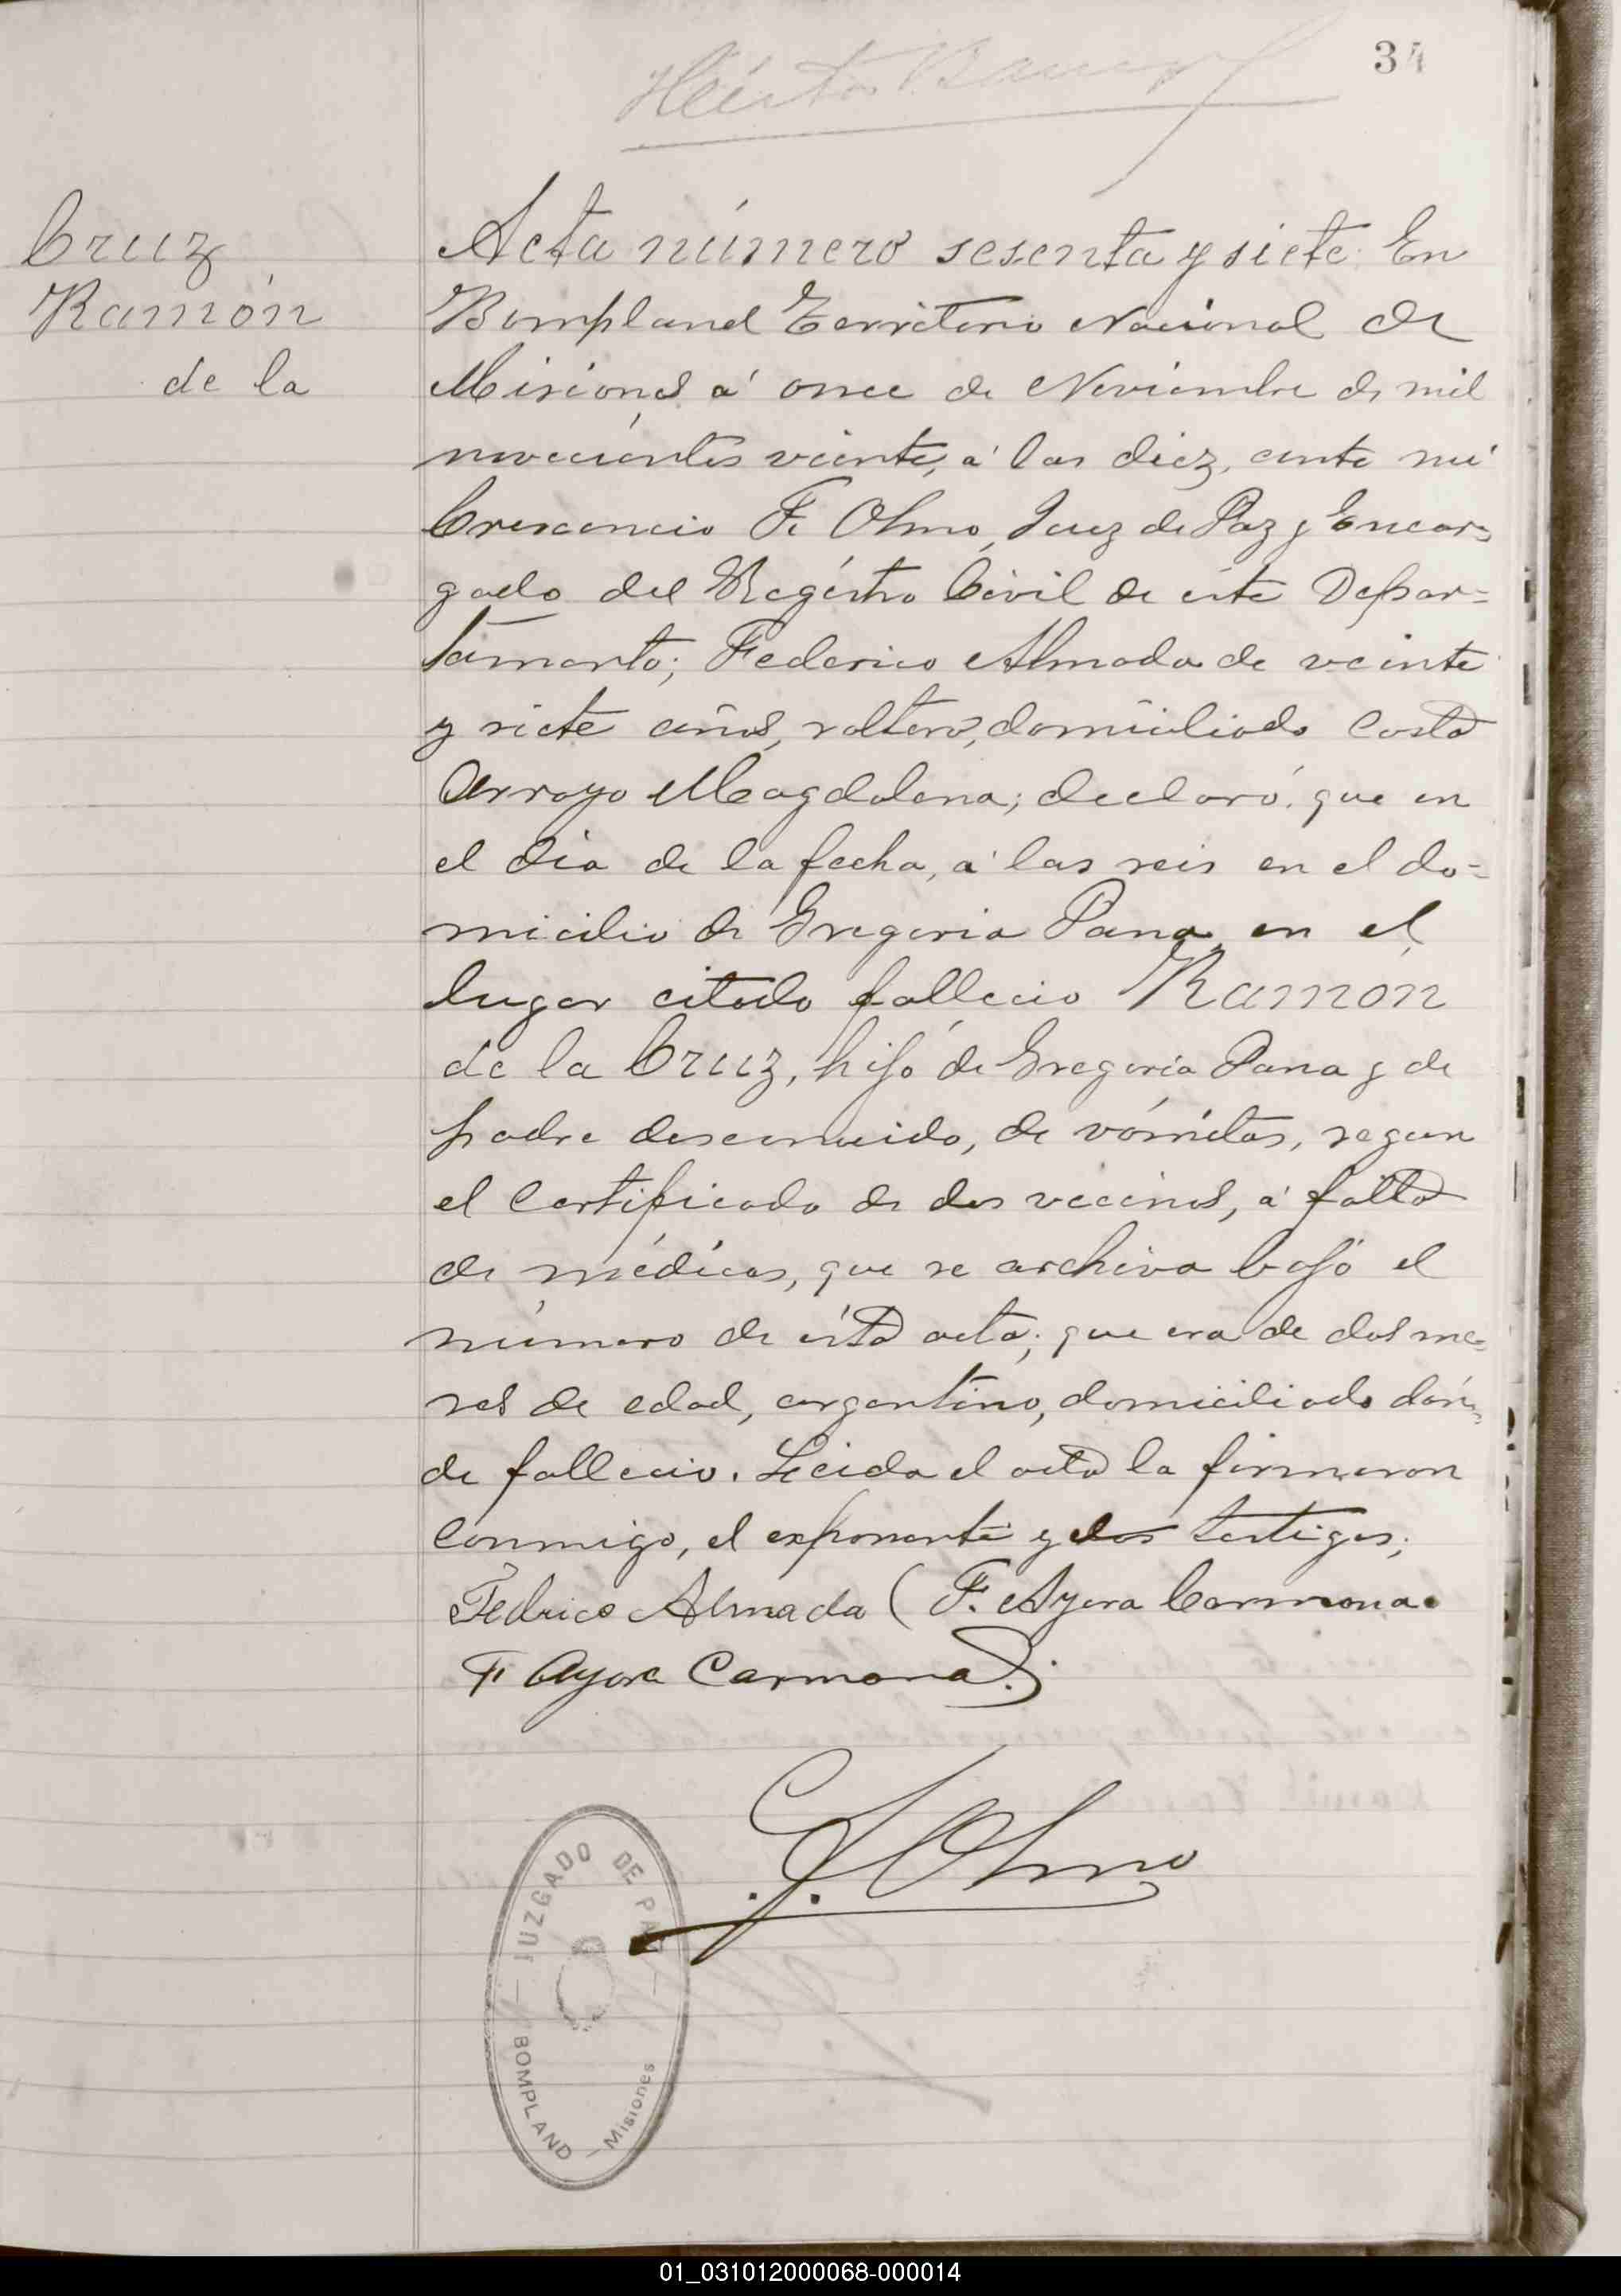 34
Cruz
Ramón
de la
Acta número sesenta y siete. En
Bompland Territorio Nacional de
Misiones á once de Noviembre de mil
novecientos veinte, á las diez, ante mi
Crescencio F. Olmo, Juez de Paz y Encar=
gado del Registro Civil de éste Depar=
tamento; Federico Almada de veinte
y siete años, soltero, domiciliado Costa
Arroyo Magdalena; declaró: que en
el dia de la fecha, á las seis en el do=
micilio de Gregoria Pana en el
lugar citado fallecio Ramón
de la Cruz, hijo de Gregoria Pana y de
padre desconocido, de vómitos, segun
el certificado de dos vecinos, á falta
de médicos, que se archiva bajo el
número de ésta acta; que era de dos me=
ses de edad, argentino, domiciliado dón=
de fallecio. Leida el acta la firmaron
conmigo, el exponente y los testigos;
Fedrico Almada (F. Ayora Carmona.
F Ayora Carmona).
C. F. Olmo
JUZGADO DE PAZ
BOMPLAND — Misiones
01_031012000068-000014